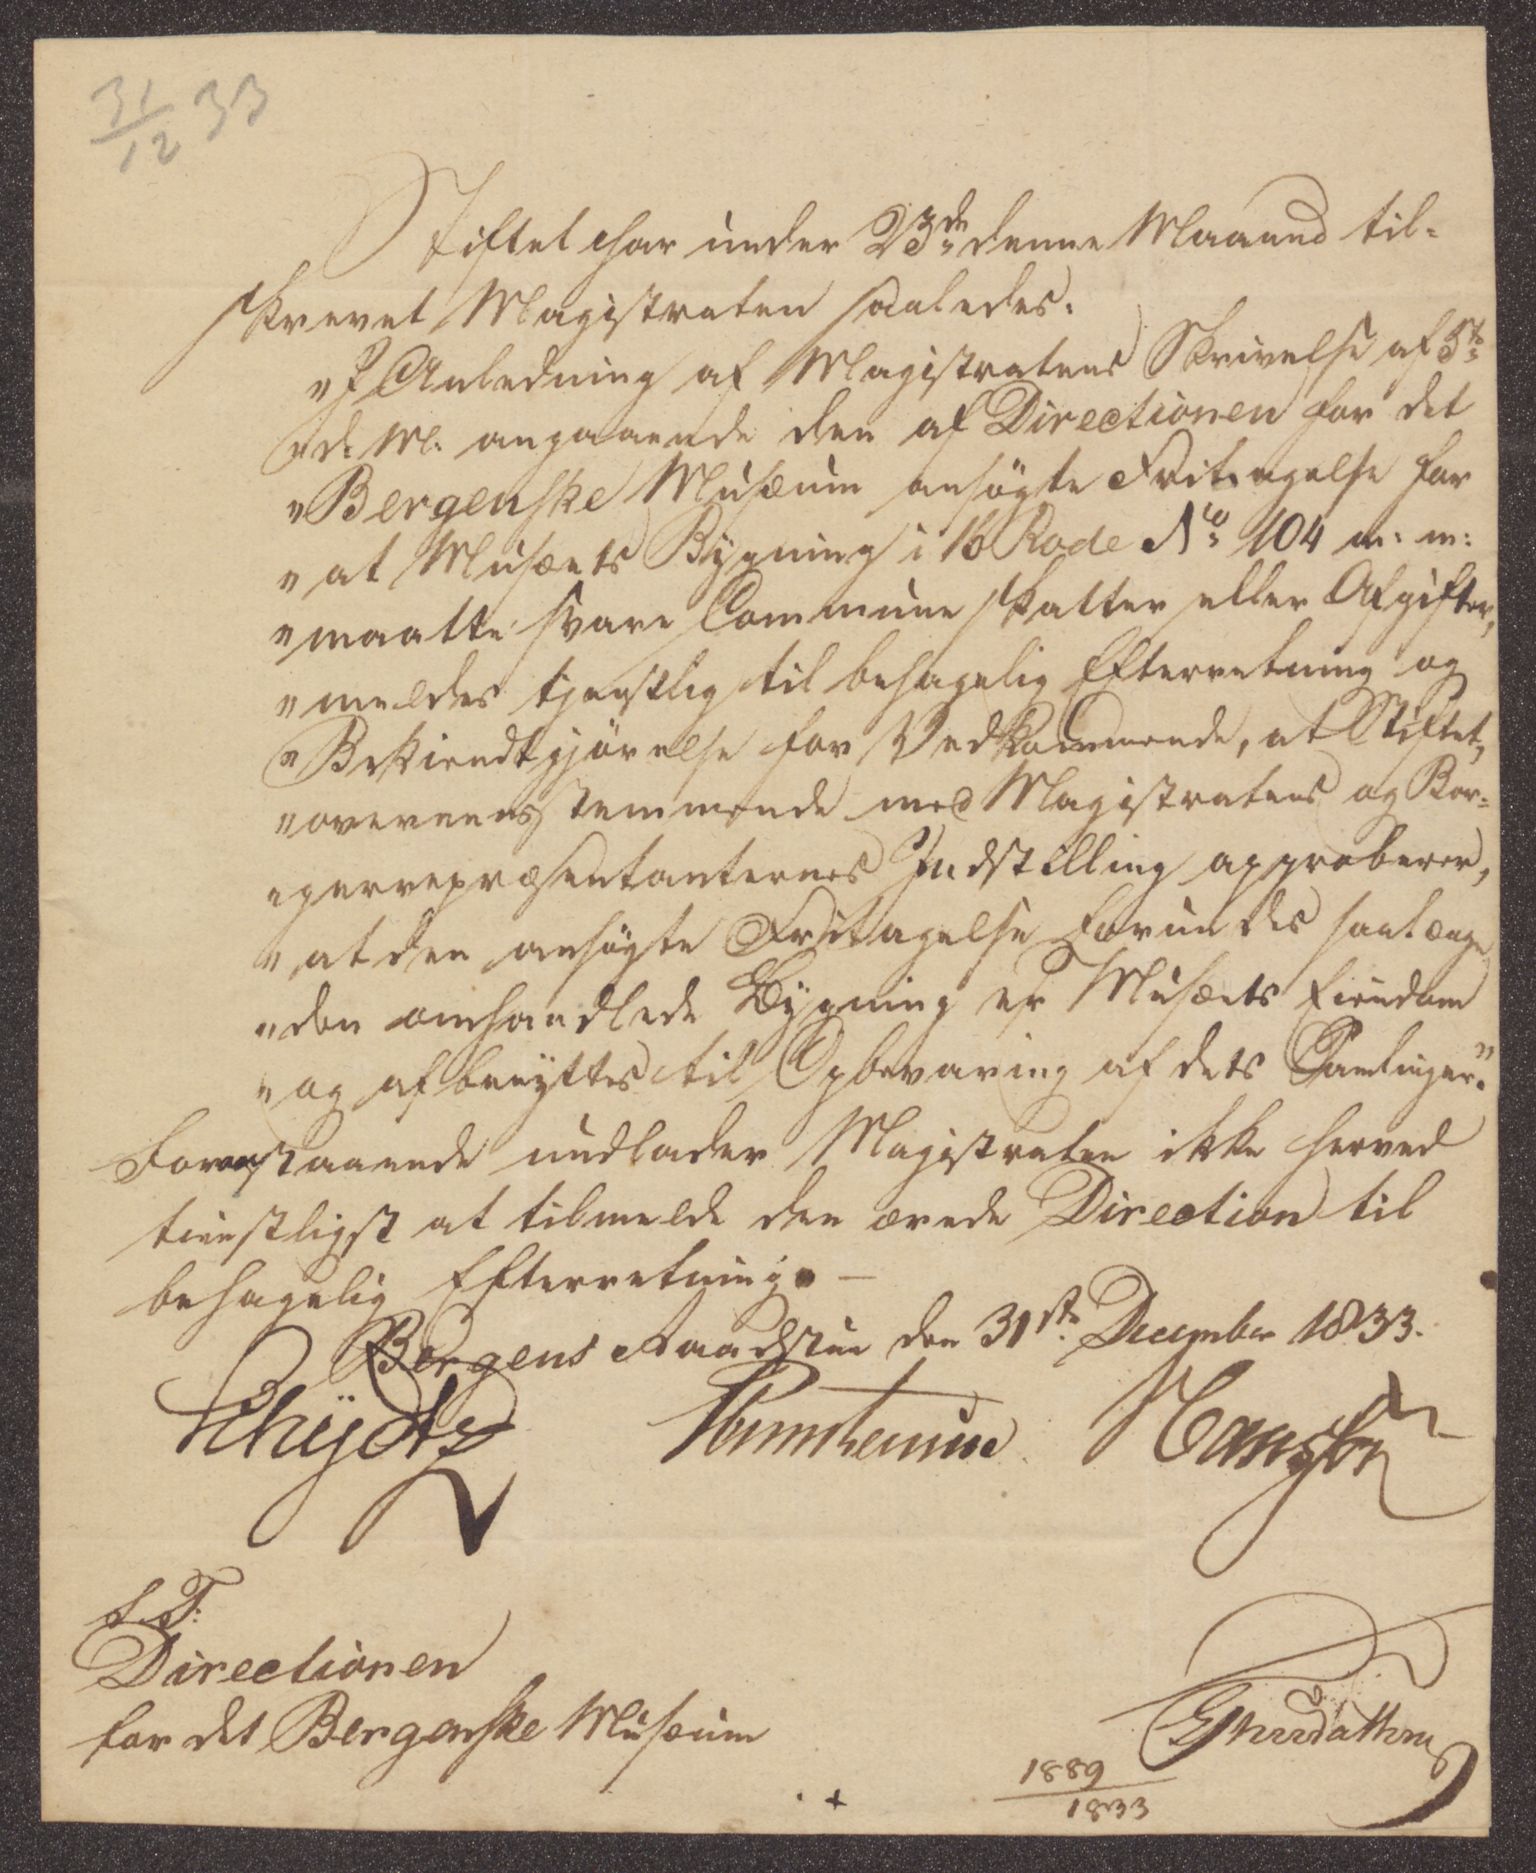 31/12 33
Stiftet har under 23de denne Maaned til-
skrevet Magistraten saaledes:
"I Anledning af Magistratens Skrivelse af 5te
"d: M: angaaende den af Directionen for det
"Bergenske Musæum ansøgte Fritagelse for
"at Musæets Bygning i 16 Rode No 104 m: m:
"maatte svare Commune Skatter eller Afgifter,
"meldes tjenstlig til behagelig Efterretning og
"Bekiendtgjørelse for Vedkommende, at Stiftet,
"overeensstemmende med Magistratens og Bor-
"gerrepræsentanternes Indstilling approberer,
"at den ansøgte Fritagelse forundes saalænge
"den omhandlede Bygning er Musæets Eiendom
"og afbenyttes til Opbevaring af dets Samlinger."
Foranstaaende undlader Magistraten ikke herved
tienstligst at tilmelde den ærede Direction til
behagelig Efterretning. —
Bergens Raadstue den 31te December 1833.
S. T:
Directionen
for det Bergenske Musæum
1889
1833